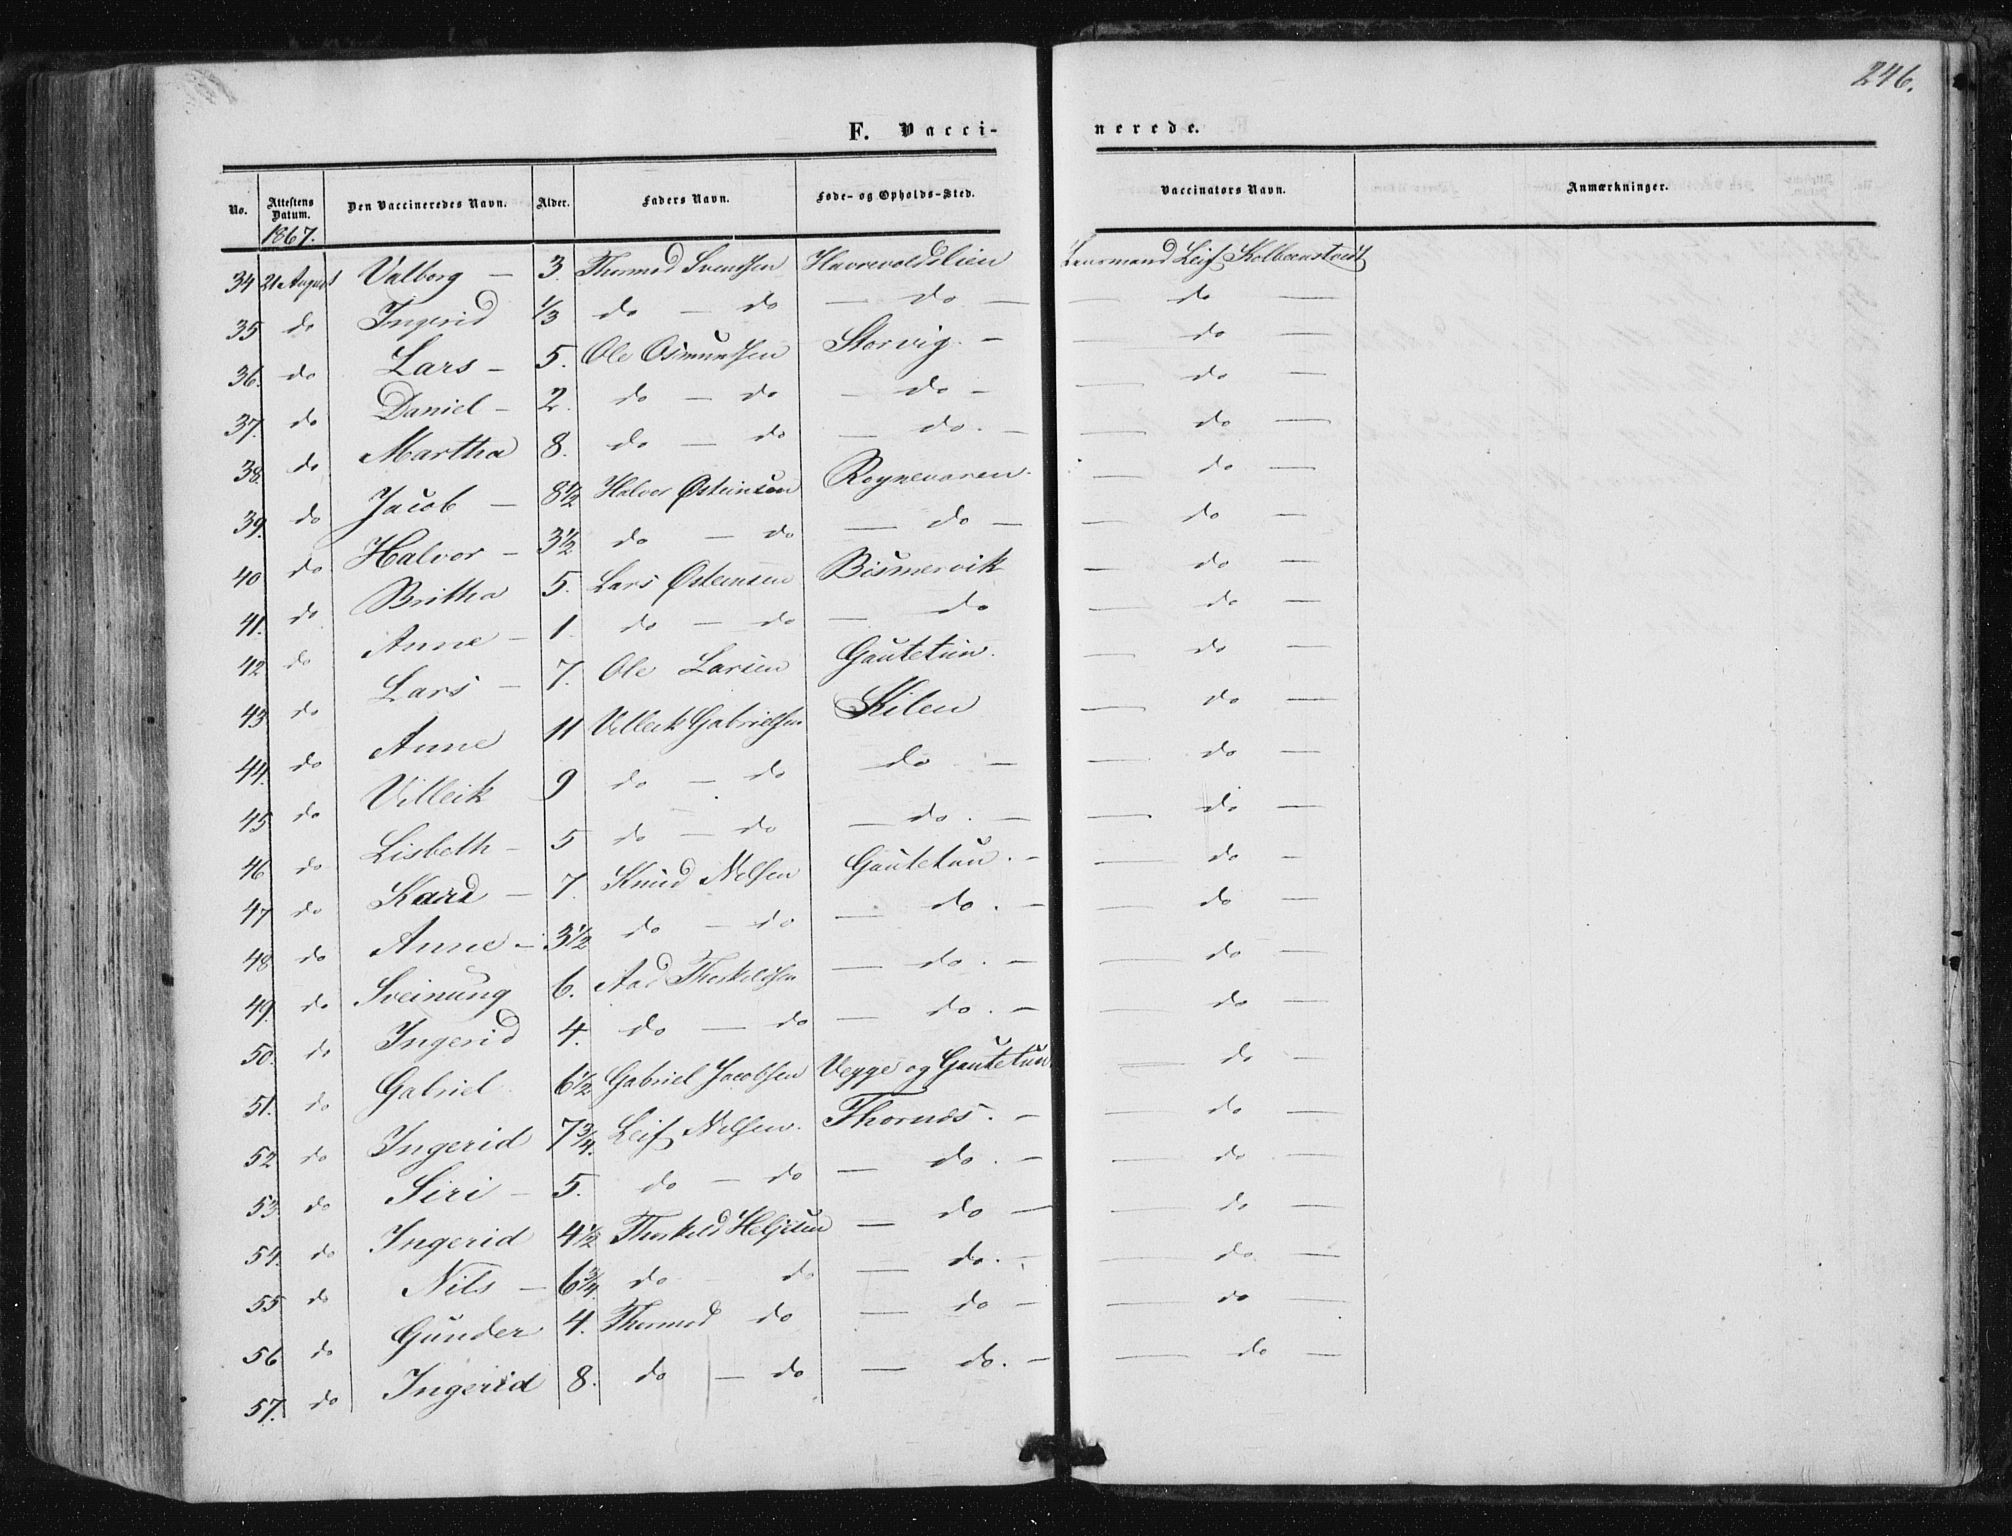 246.
F. Vacci-nerede.
No. Attestens Datum. Den Vaccineredes Navn. Alder. Faders Navn. Føde- og Opholds-Sted. Vaccinators Navn. Anmærkninger.
1867.
34 21 August Valborg - 3. Thormod Svendsen Havrevoldslien Lensmand Leif Kolbeenstvedt
35 do Ingerid 1/3 do - do - do - - do -
36. do Lars - 5. Ole Osmundsen Storvig. - - do -
37. do Daniel - 2. do - do - do - - do -
38. do Martha 8. do - do - do. - - do -
39. do Jacob - 8 1/2 Halvor Østeinsen Rognevaren. - do -
40 do Halvor - 3 1/2 do - do - do - - do -
41. do Britha 5. Lars Østeinsen Bismervik - do -
42 do Anne - 1. do - do - do - do -
43. do Lars - 7. Ole Larsen Gautetun. - do -
44. do Anne 11 Villeik Gabrielsen Kilen - do -
45 do Villeik 9 do - do do - - do -
46 do Lisbeth - 5 do - do - do. - - do -
47 do Kari - 7. Knud Nilsen Gautetun. - - do -
48 do Anne - 3 1/2 do - do - do. - - do -
49. do Sveinung 6. Aad Thorkildsen - do. - - do -
50. do Ingerid 4. do - do - do. - - do -
51. do Gabriel 6 1/2 Gabriel Jacobsen Vegge og Gautetun. do -
52 do Ingerid 7 3/4. Leif Nilsen. Thornes. - - do -
53. do Siri - 5. do - do - do. - - do -
54. do Ingerid 4 1/2 Thorkild Heljesen - do - - do -
55 do Nils - 6 3/4. do - do - do. - - do. -
56 do Gunder 4. Thormod do - do - - do -
57. do Ingerid 8. do - do - do. - - do -